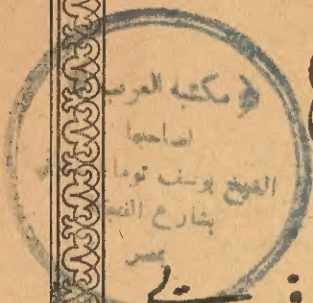 مكتبة العرب
لصاحبها
الشيخ يوسف توما
بشارع الفجالة
بمصر